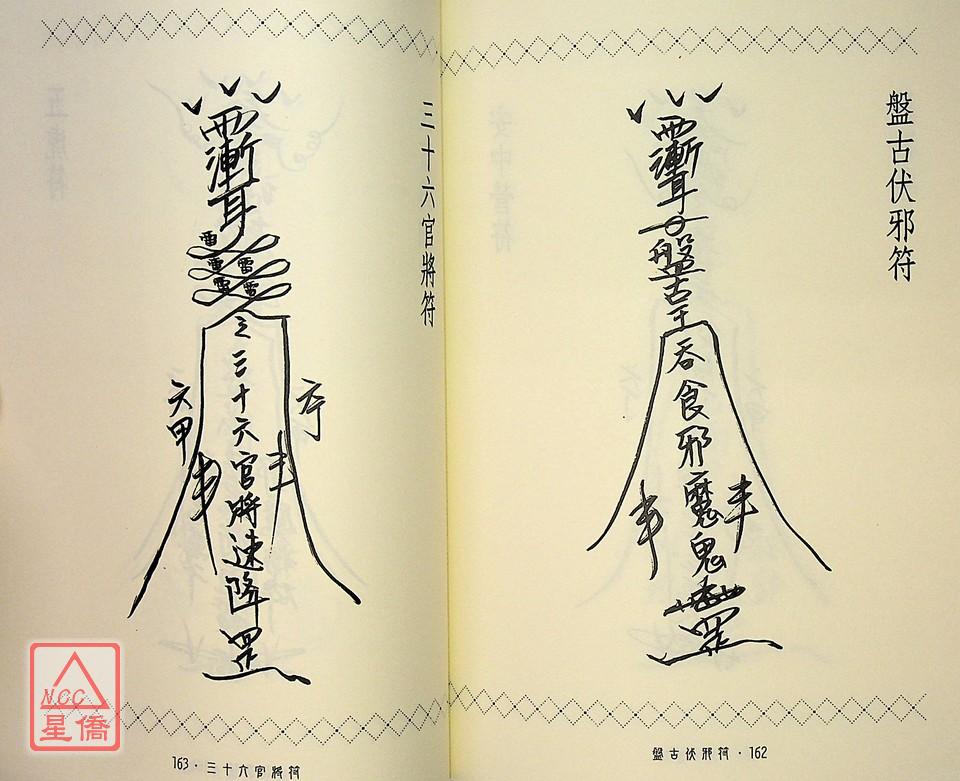 盤古伏邪符
盤古王
吞食邪魔鬼
罡
盤古伏邪符·162
三十六官將符
雷
雷 雷
雷 雷
三十六官將速降罡
六甲
六丁
163·三十六官將符
NCC
星僑